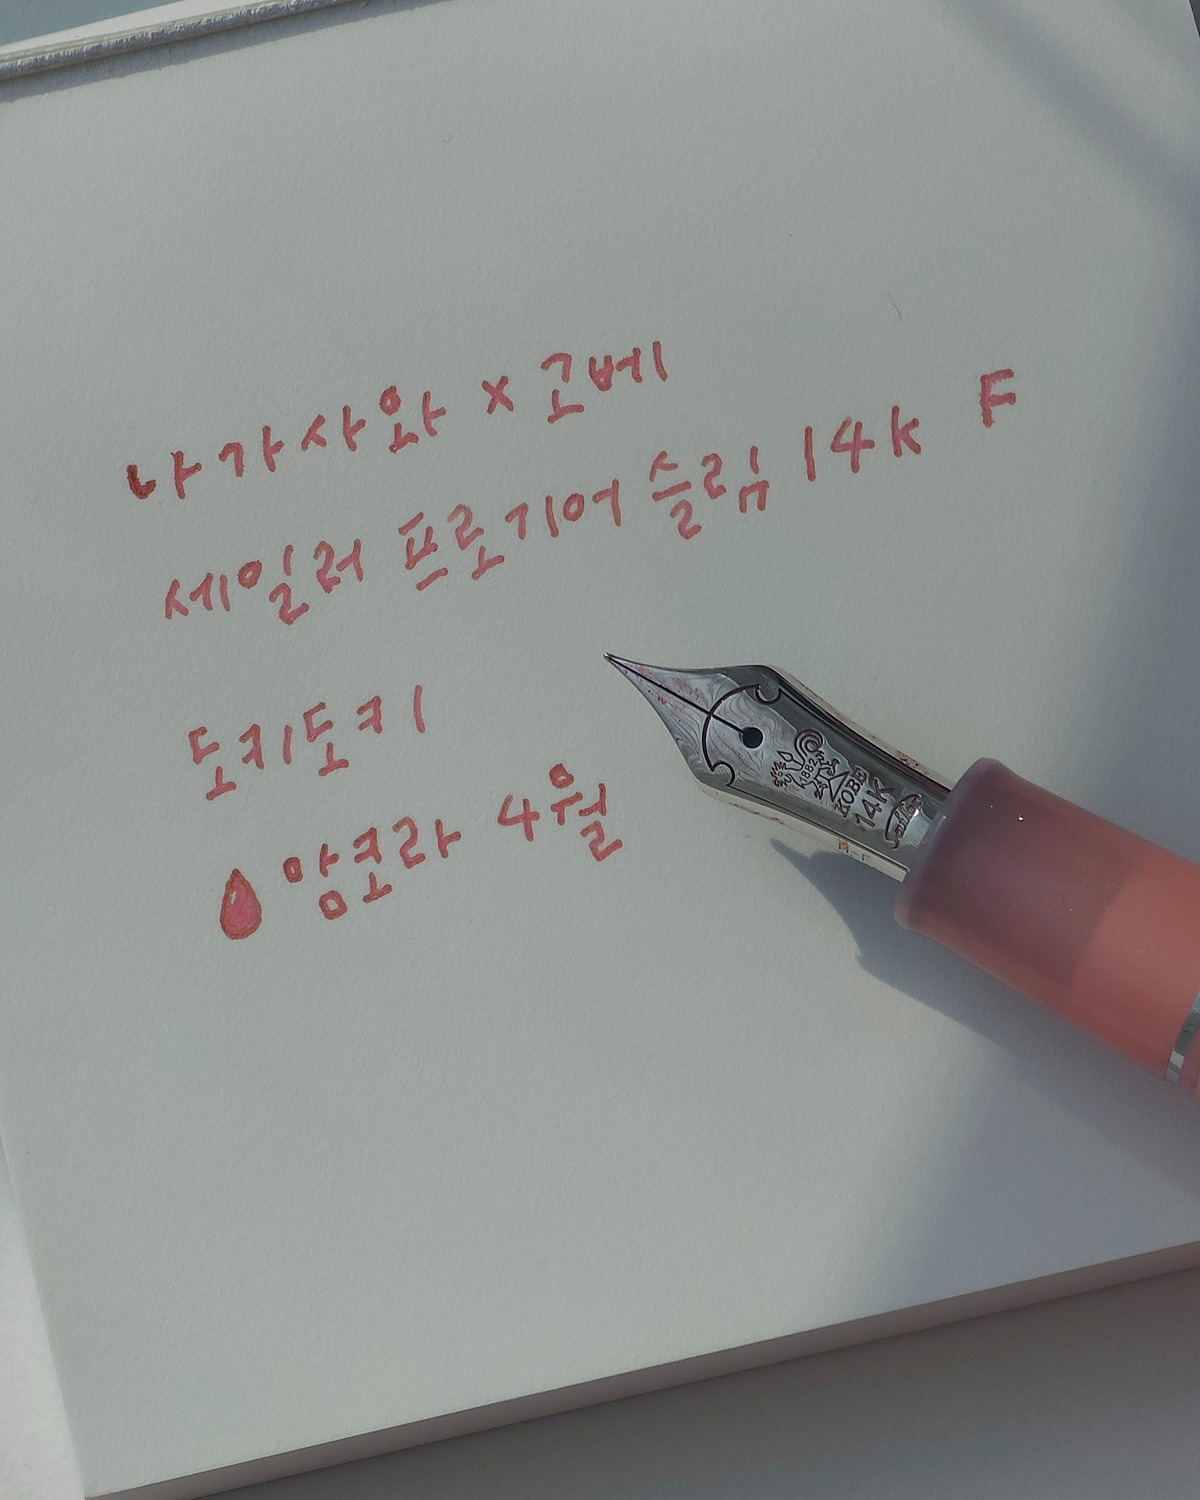 나가사와 x 고베
세일러 프로기어 슬림 14k F
도키도키
암코라 4월
1882
KOBE
14K
Sailor